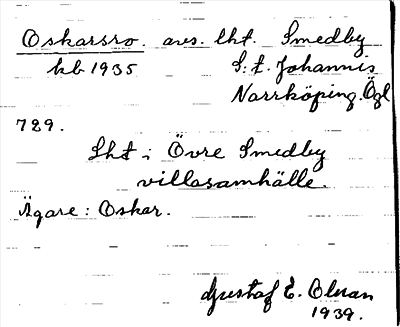 Oskarsro. avs. lht. Smedby
kb 1935 S:t. Johannis
Norrköping. Ögl
729.
Lht i Övre Smedby
villasamhälle.
Ägare: Oskar.
Gustaf E. Olsson
1939.